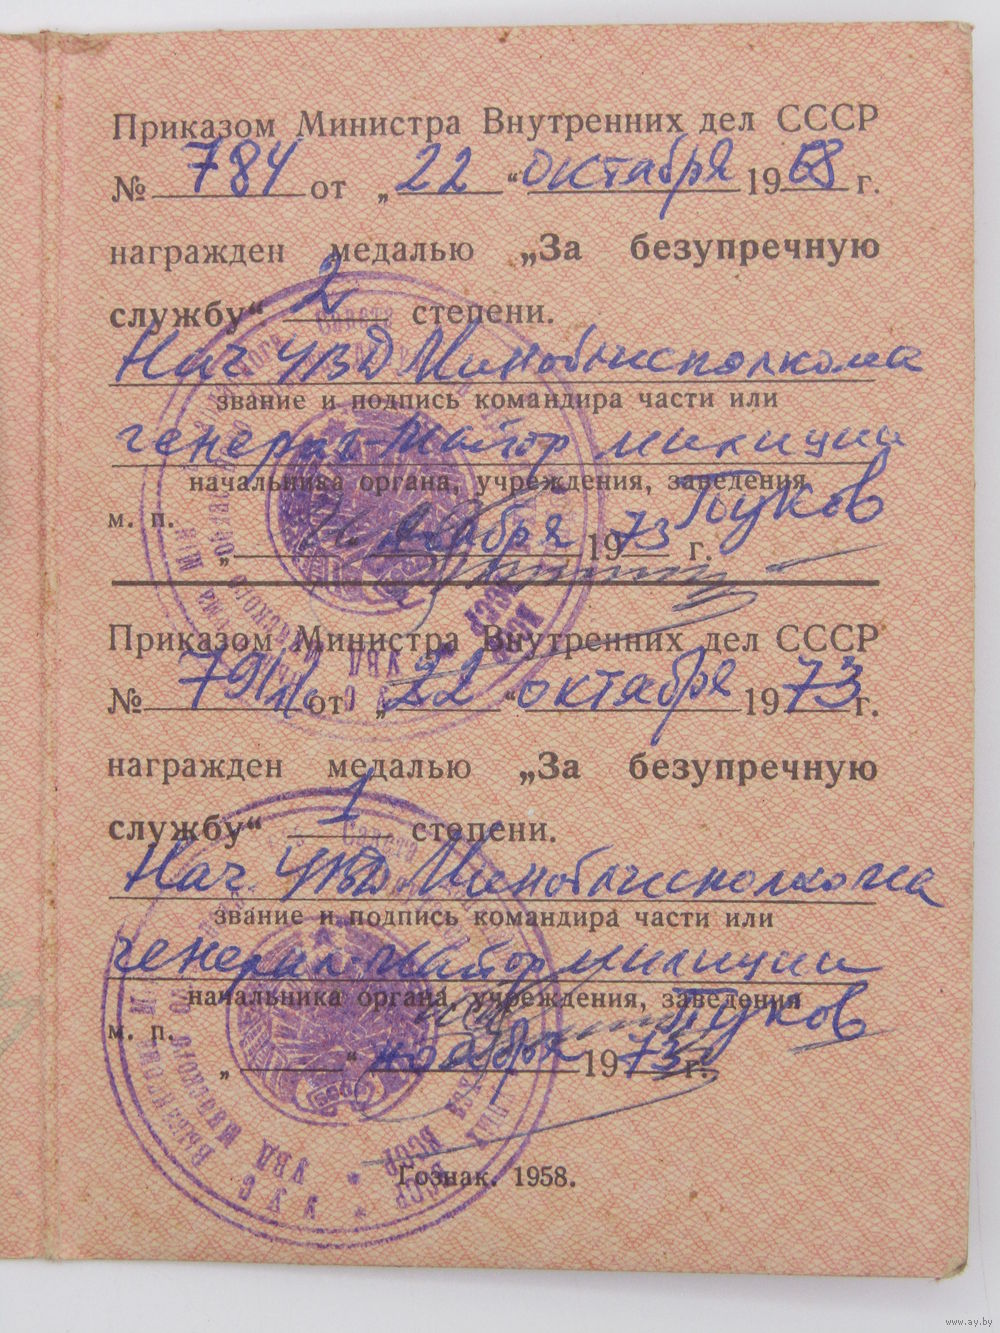 Приказом Министра Внутренних дел СССР
№ 784 от „22“ октября 1968 г.
награжден медалью „За безупречную
службу“ 2 степени.
Нач. УВД Миноблисполкома
звание и подпись командира части или
генерал-майор милиции
начальника органа, учреждения, заведения
Пуков
м. п.
ноября 1973 г.
Приказом Министра Внутренних дел СССР
№ от „22“ октября 1973 г.
награжден медалью „За безупречную
службу“ 1 степени.
Нач. УВД Миноблисполкома
звание и подпись командира части или
генерал-майор милиции
начальника органа, учреждения, заведения
Пуков
м. п.
„ “ ноября 1973 г.
Гознак. 1958.
www.ay.by